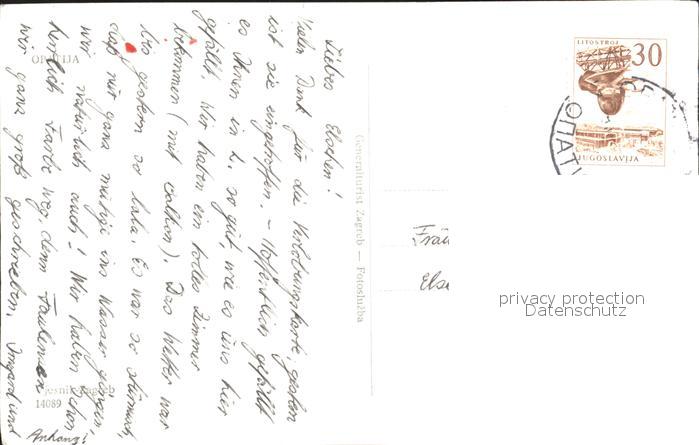 OPATIJA
Liebes Elschen!
Vielen Dank für die Verlobungskarte, gestern
ist sie eingetroffen. - Hoffentlich gefällt
es Ihnen in L. so gut, wie es uns hier
gefällt. Wir haben ein tolles Zimmer
bekommen (mit Balkon). Das Wetter war
bis gestern so lala. Es war so stürmisch,
daß nur ganz mutige ins Wasser gingen,
wir natürlich auch! Wir haben schon
herrlich Farbe weg, denn Faulenzen
wir ganz groß geschrieben. Irmgard und
Generalturist Zagreb — Fotoslužba
Vjesnik-Zagreb
14089
LITOSTROJ
30
JUGOSLAVIJA
ОПАТИ
Fräu
Else
privacy protection
Datenschutz